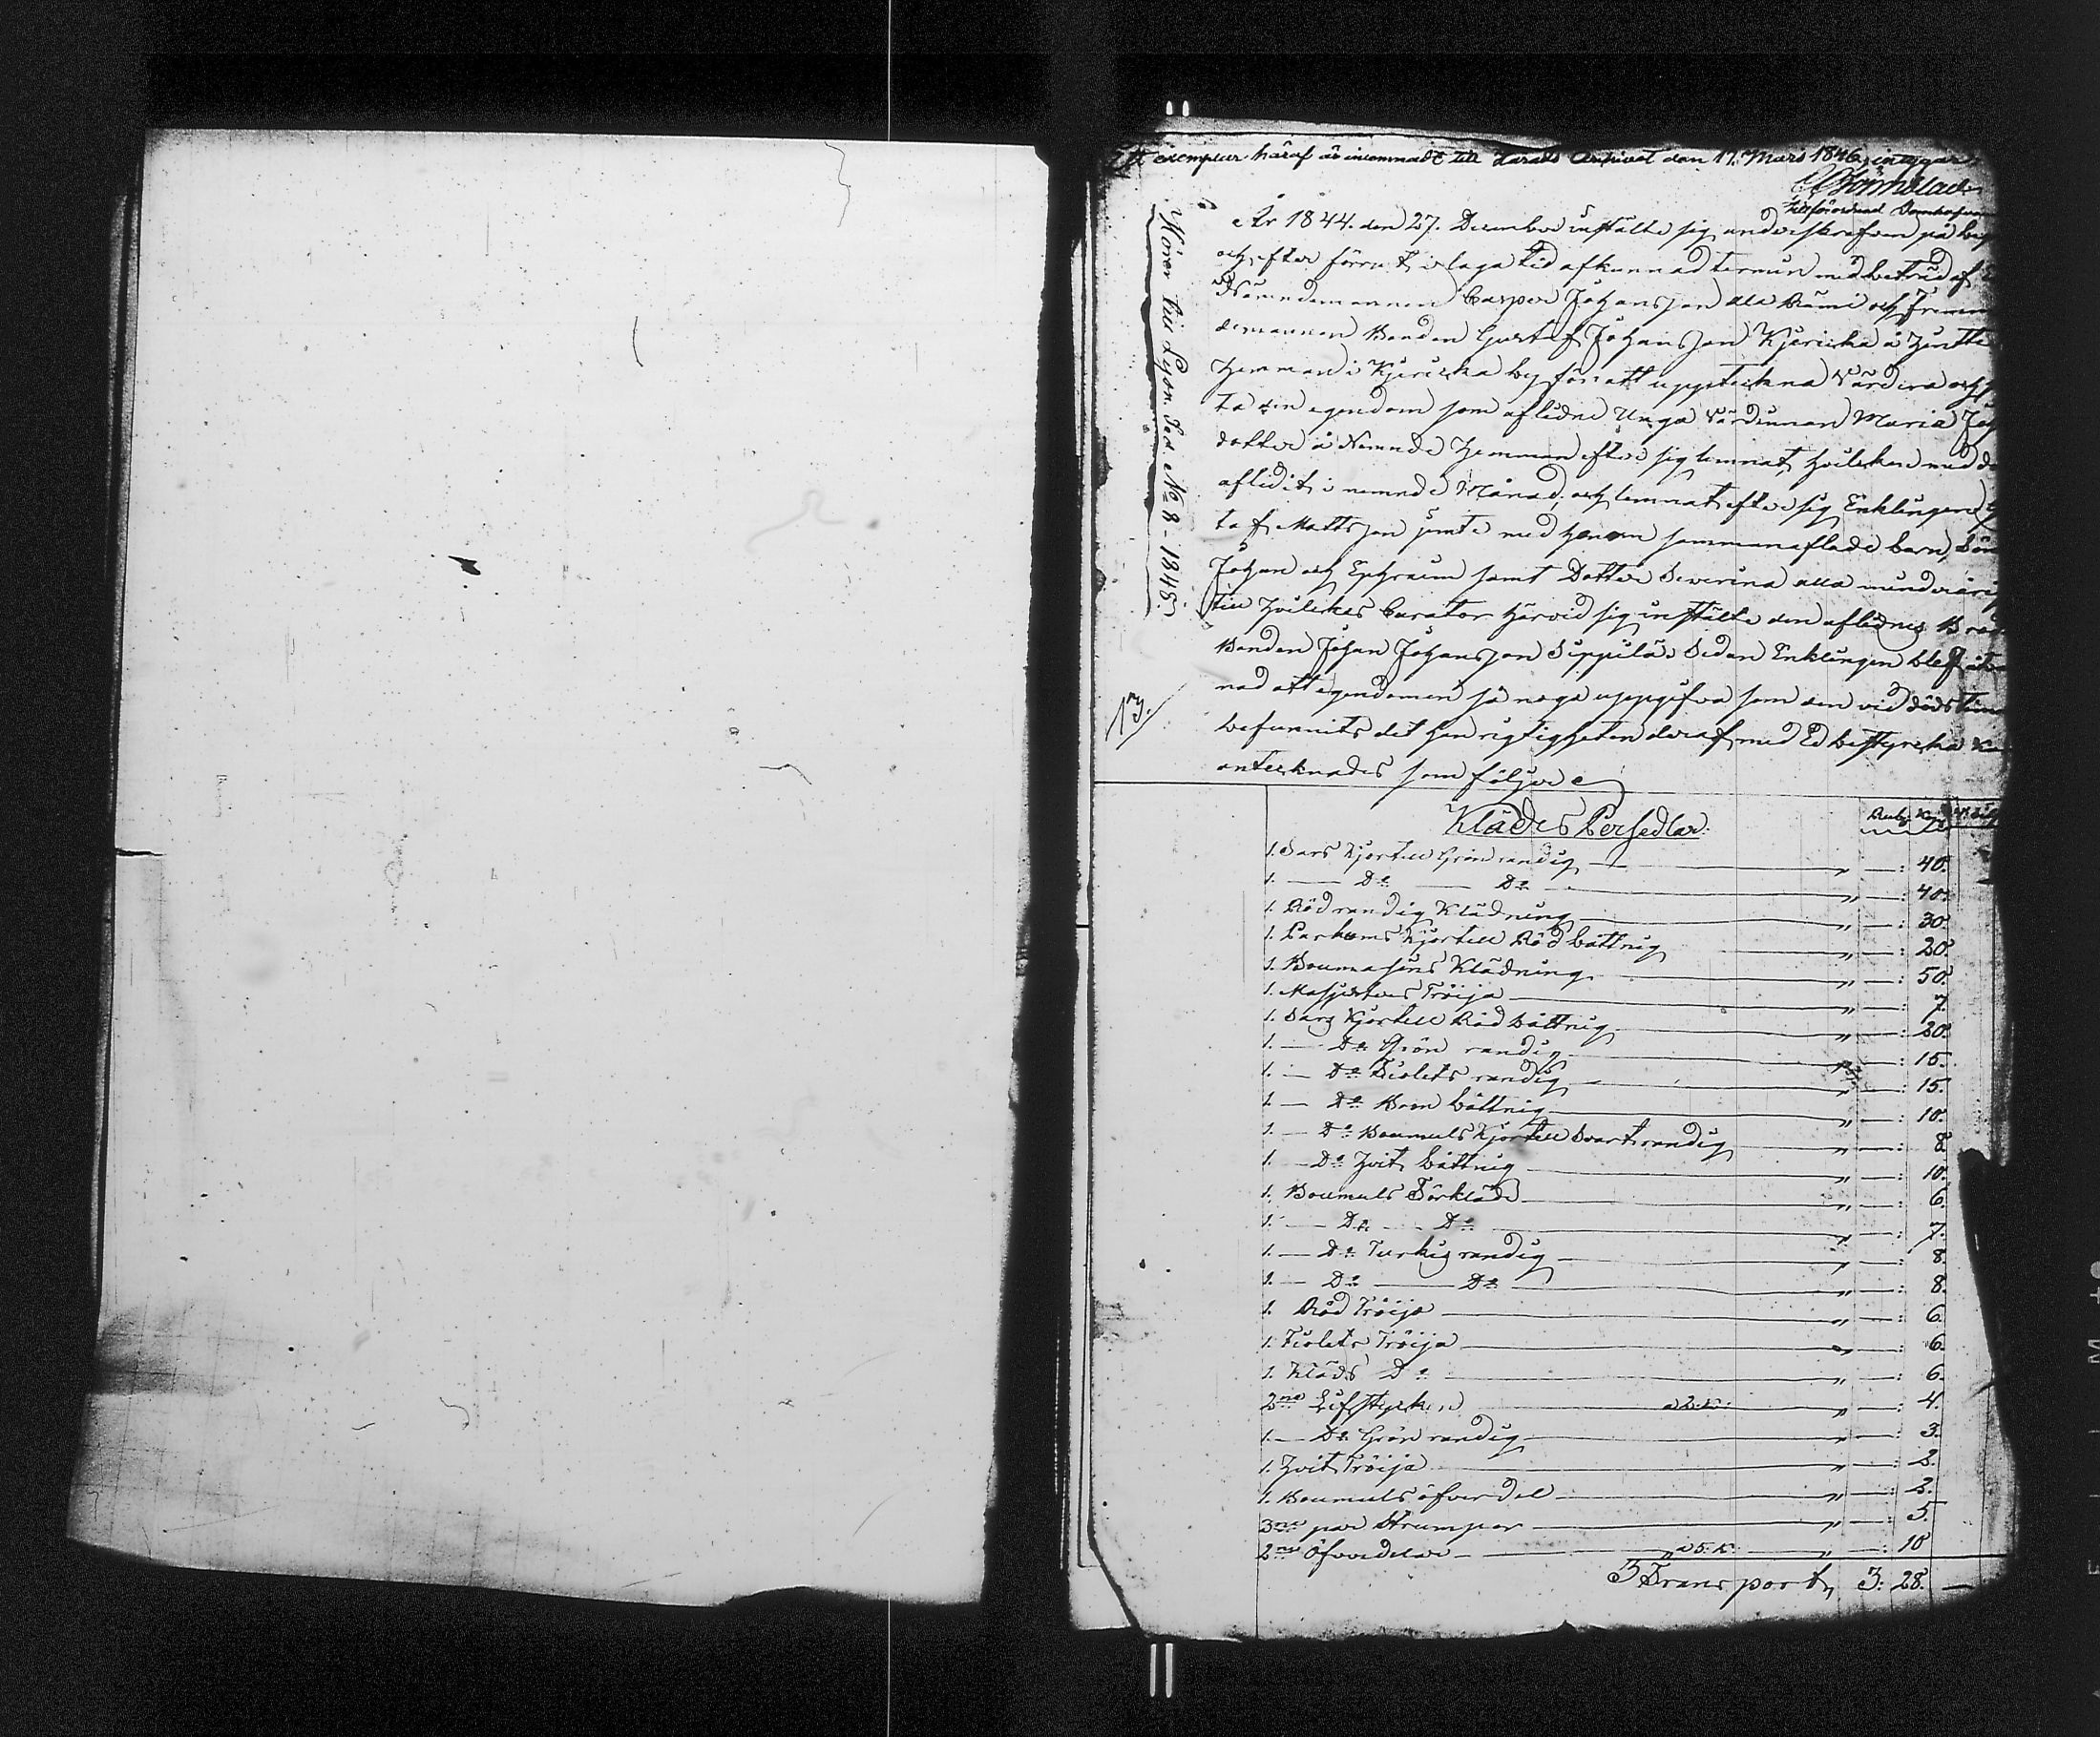 exemplar häraf är inlemnadt till Härads Archivet den 17. Mars 1846, intygar
Tillförordnad Domhafvan
År 1844. den 27. December instälte sig undertskrefven på beg
och efter förrut i laga tid afkunnad termin med beträd af
Nämndemannen Casper Johansson Ala Rämi och Fremm
demannen Bonden Gustaf Johansson Kjerikka å
Hemman i Kjerikka by för att uppteckna Värdera och
ta den egendom som aflidne Unga Värdinnan Maria Joh
dotter å Nemnde Hemman efter sig lemnat, hvilken med
aflidit i nemnde Månad, och lemnat efter sig Enklingen G
taf Mattsson jemte med honom sammanaflade barn, Sön
Johan och Ephraim samt Dotter Severina alla mindreåri
till hvilkas Curator härvid sig instälte den aflidnes Brod
Bonden Johan Johansson Seppilä, Sedan Enklingen blef åt
nad att egendomen så noga uppgifva som den vid dödstim
befunnits det han rigtigheten deraf med Ed bestyrcka ka
antecknades som följer
Hörer till Lyon. Sed. No 8 - 1848.
13.
Klädes Persedlar:
Rub. K.
1. Sars Kjortell Grön randig " — : 40.
1. — Do — Do " — : 40.
1. Röd randig Klädning " — : 30.
1. Parkums Kjortell Röd båttnig " — : 20.
1. Boumasins Klädning " — : 50.
1. Tröija " — : 7.
1. Sars Kjortell Röd båttnig " — : 20.
1. — Do Grön randig " — : 15.
1. — Do Fiolets randig " — : 15.
1. — Do Brun båttnig " — : 10.
1. — Do Boumuls Kjortell Svart randig " — : 8.
1. — Do Hvit båttnig " — : 10.
1. Boumuls Förkläde " — : 6.
1. — Do — Do " — : 7.
1. — Do Turkig randig " — : 8.
1. — Do — Do " — : 8.
1. Röd Tröija " — : 6.
1. Fiolets Tröija " — : 6.
1. Kläds Do " — : 6.
2ne Lifstycken a 2. K. " — : 4.
1. — Do Grön randig " — : 3.
1. Hvit Tröija " — : 2.
1. Boumuls öfverdel " — : 2.
3ne par Strumpor " — : 5.
2ne Öfverdelar a 5. K. " — : 10
Transport, 3: 28. —